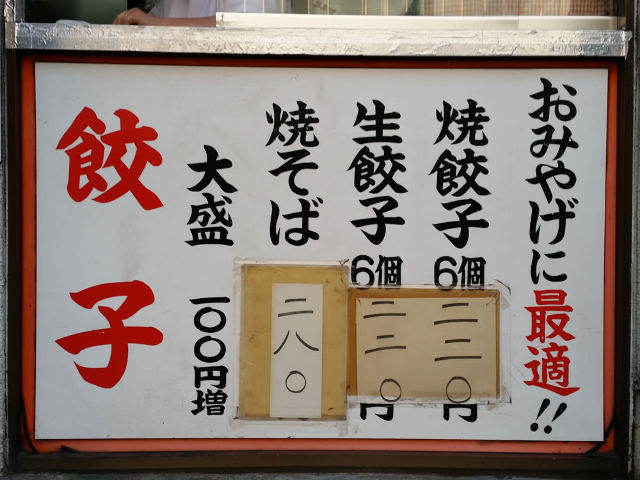 おみやげに最適!!
焼餃子 6個 二二〇円
生餃子 6個 二二〇円
焼そば 二八〇
大盛 一〇〇円増
餃子